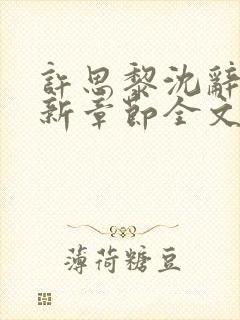 許思黎沈辭
新章節全文
薄荷糖豆